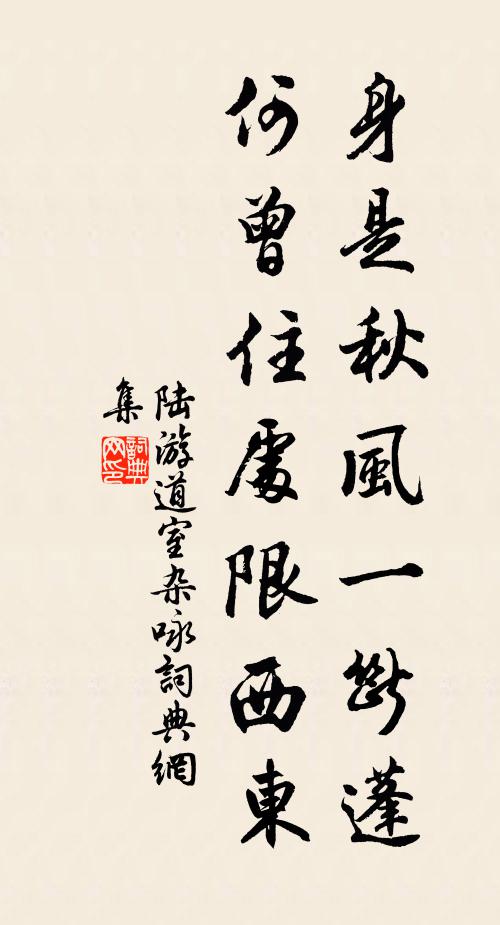 身是秋風一斷蓬
何曾住處限西東
陸游道室杂咏詞典網
集
詞典網印